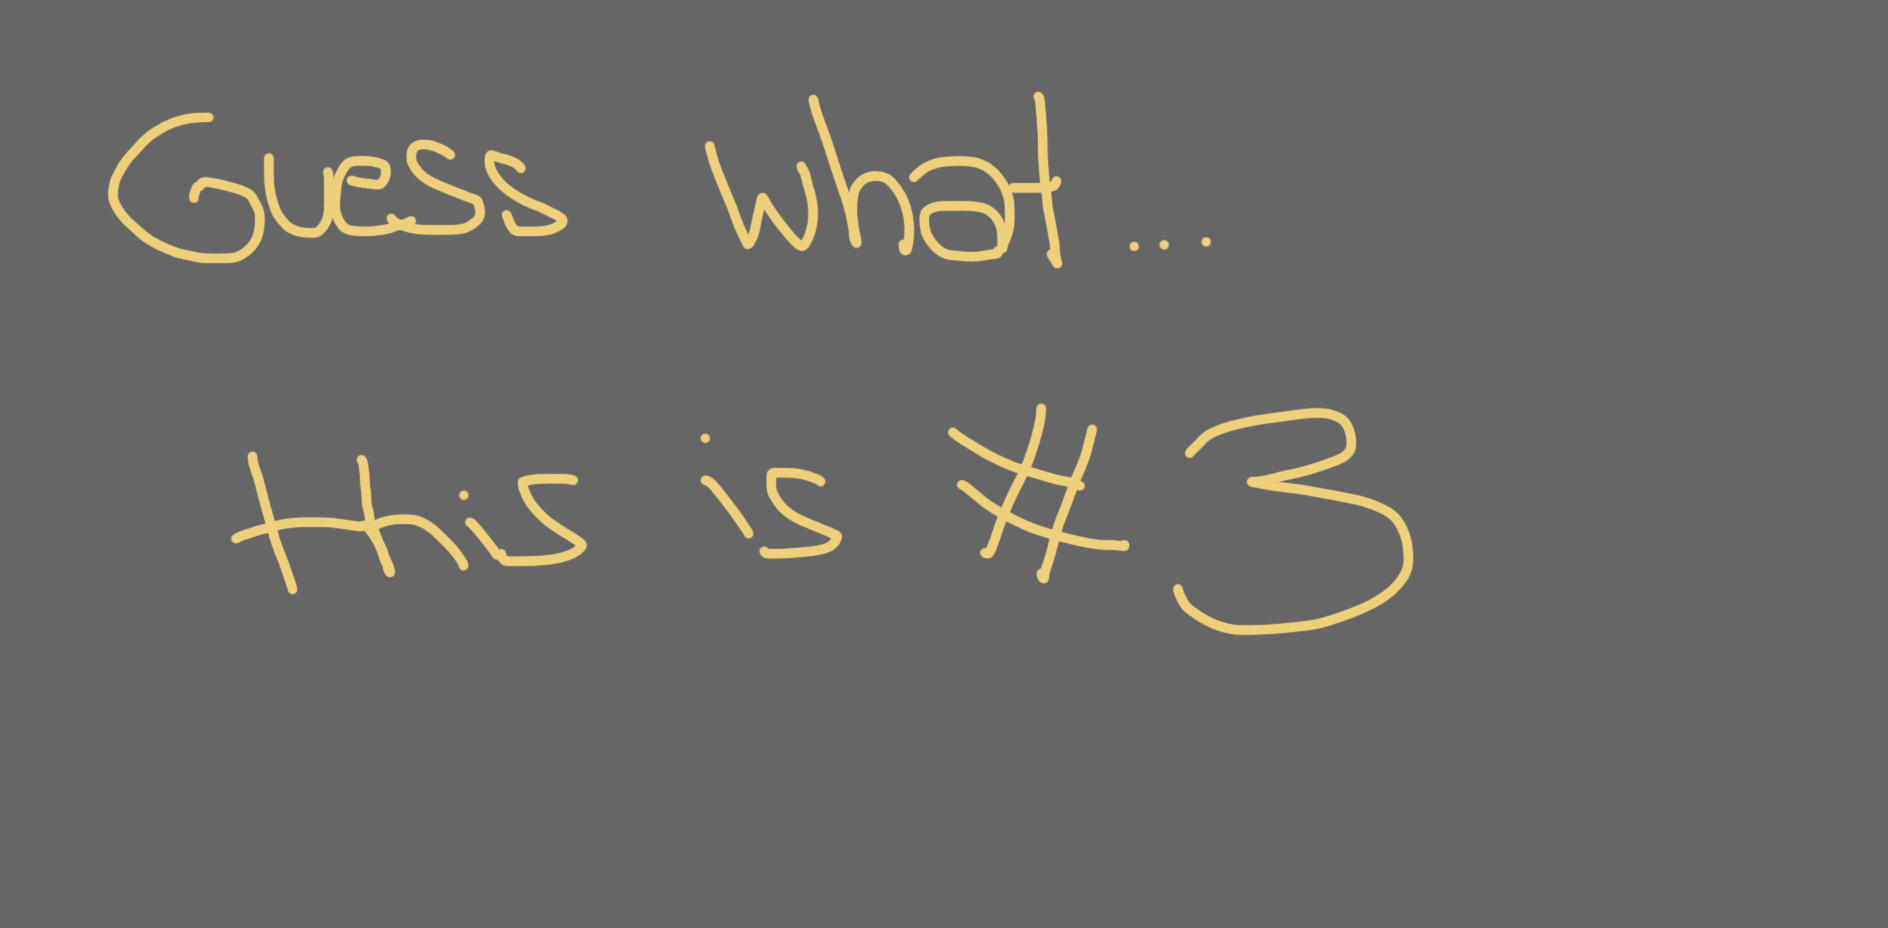 Guess what...
this is #3